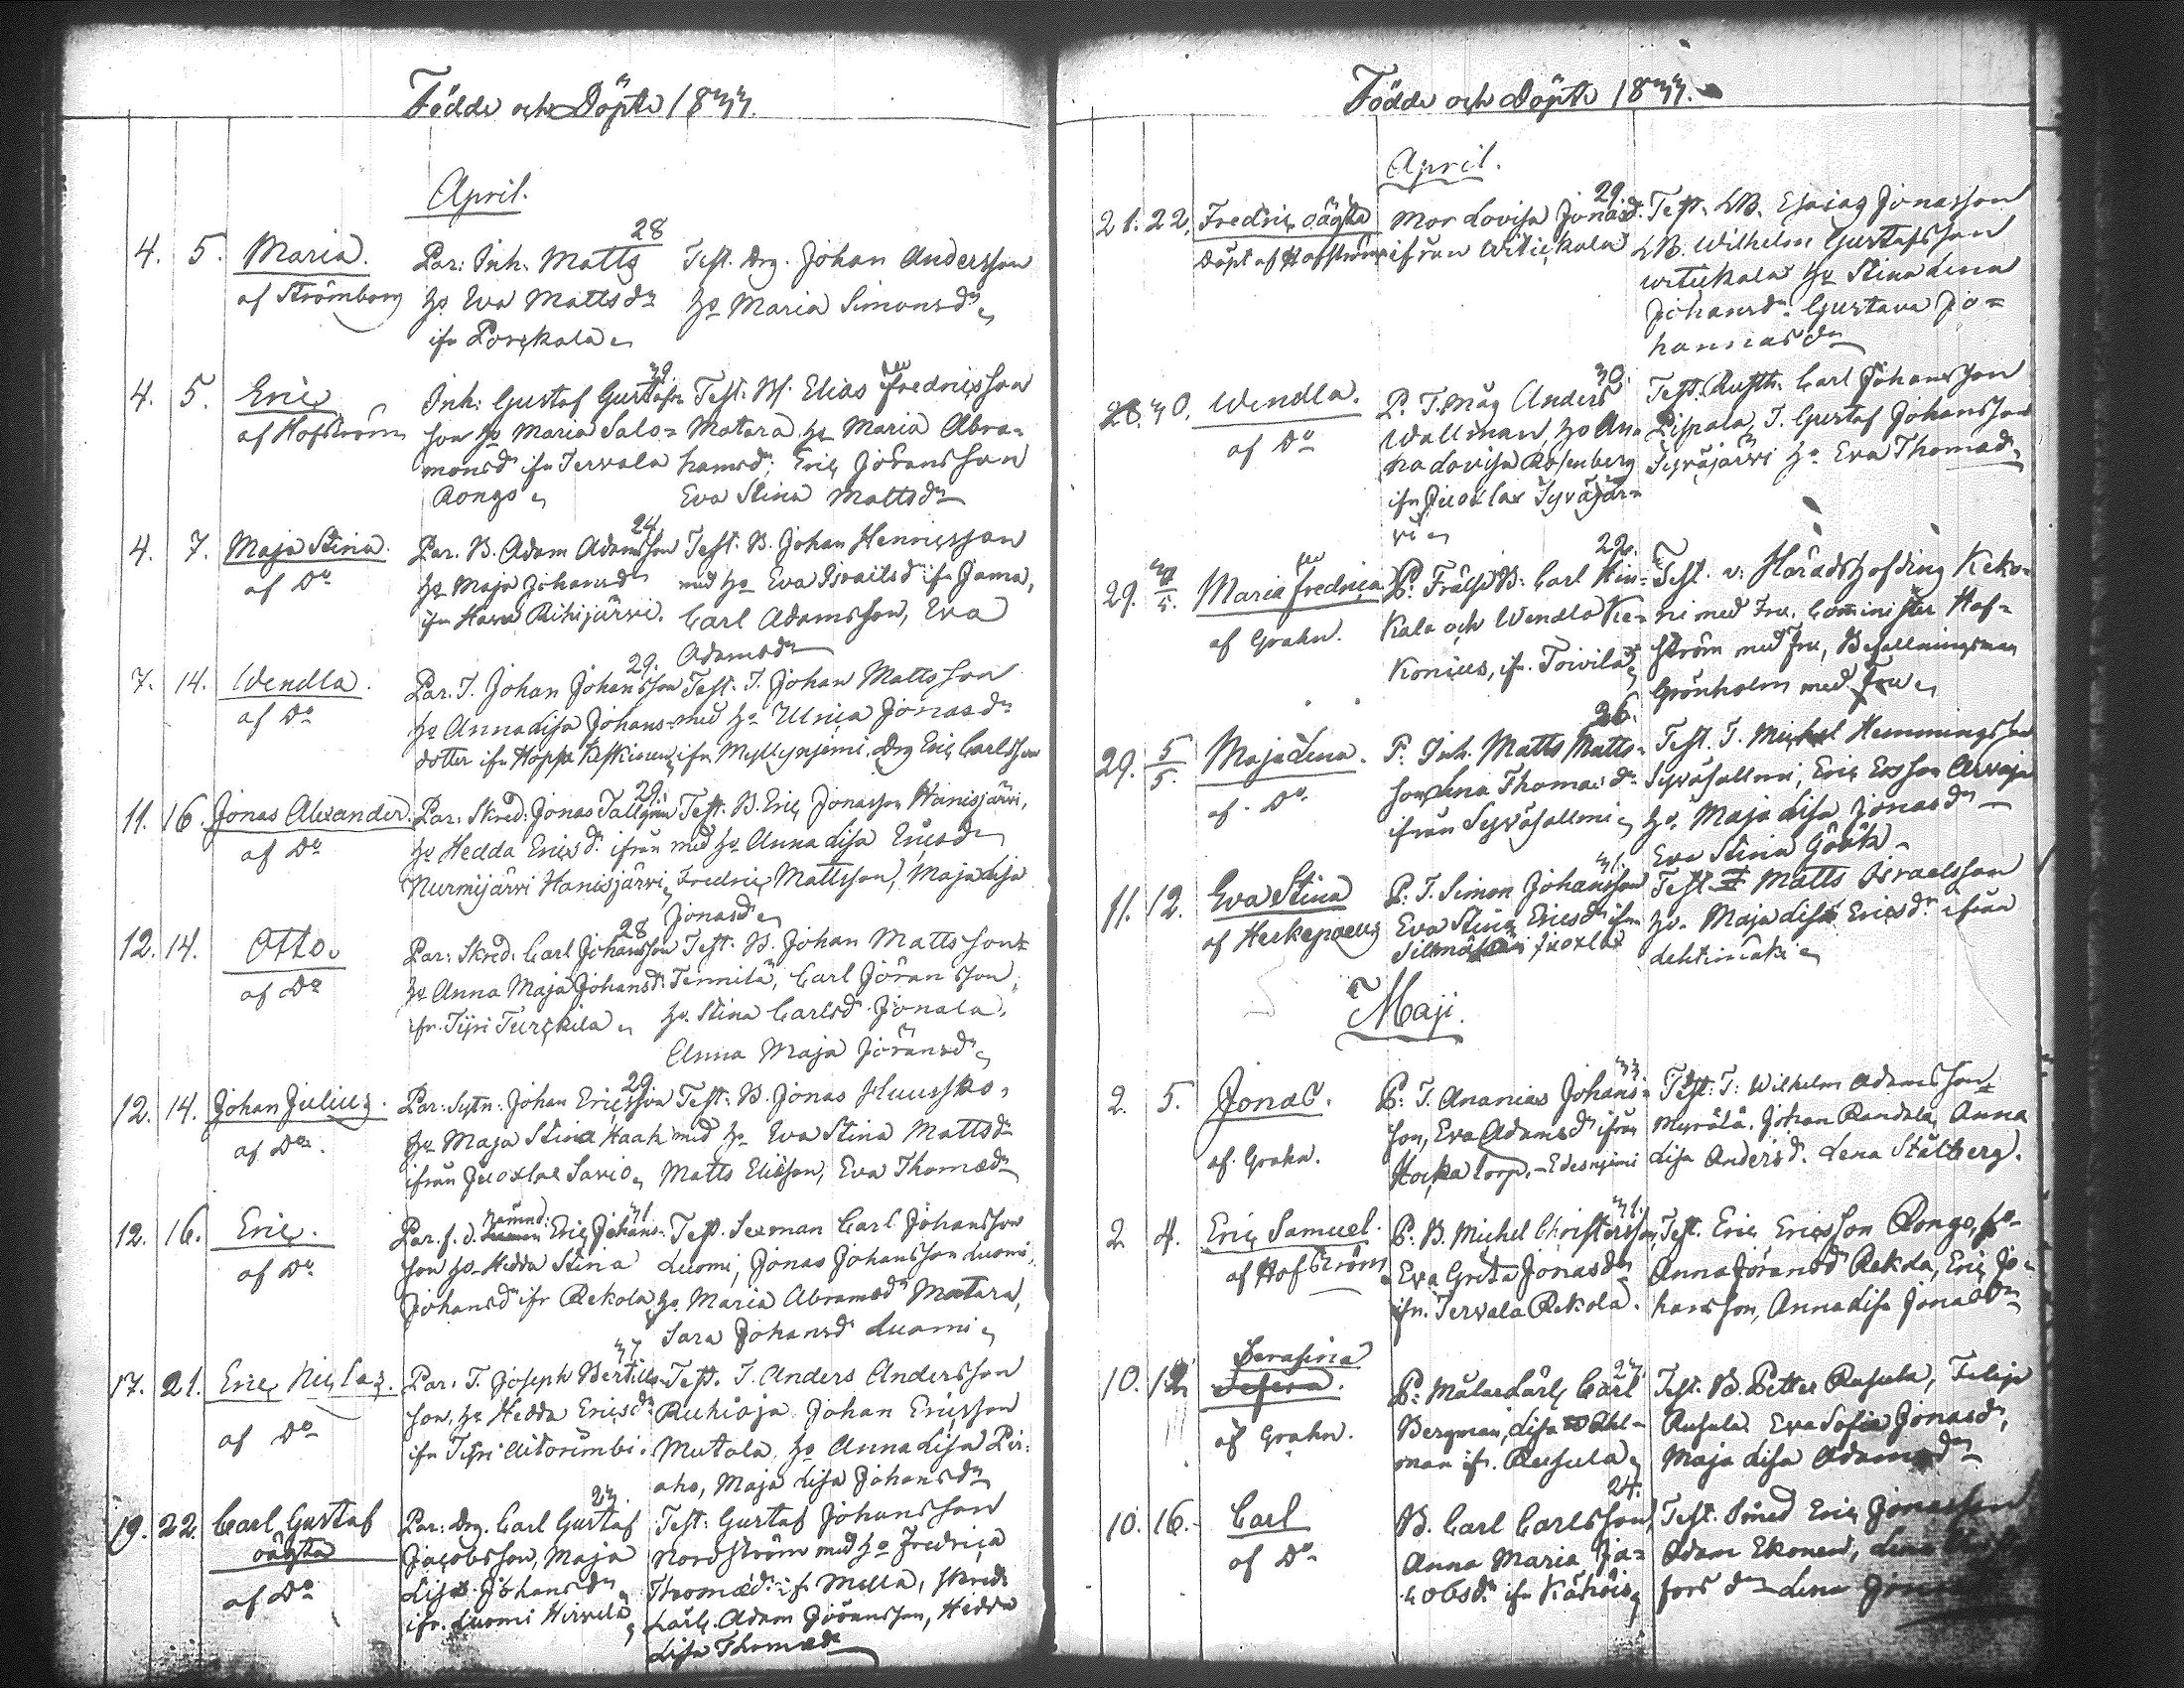 Födde och Döpte 1833.
April.
4. 5. Maria.
af Strömborg
28
Par: Inh. Matts
ho Eva Mattsdr
ifr Porckala
Test. Drg. Johan Andersson
ho Maria Simonsdr
4. 5. Eric
af Hofström
39.
Inh: Gustaf Gustafs=
son ho Maria Salo=
monsdr ifr Tervala
Rongo
Test: Elias Fredricsson
Matara, ho Maria Abra=
hamsdr; Eric Johansson
Eva Stina Mattsdr
4. 7. Maja Stina.
af Do
24
Par. B. Adam Adamsson
ho Maja Johansdr
ifr Rihijärvi.
Test: B. Johan Henricsson
med ho Eva Israelsdr ifr
Carl Adamsson, Eva
Adamsdr
7. 14. Wendla.
af Do
29.
Par. T. Johan Johansson
ho Anna Lisa Johans=
dotter ifr
Test. T. Johan Mattsson
med ho Ulrica Jonasdr
ifr Myllynjemi. Drg Eric Carlsson
11. 16. Jonas Alexander.
af Do
29.
Par: Skred: Jonas Tallgrén
ho Hedda Ericsdr ifrån
Nurmijärvi Hanisjärvi
Test: B. Eric Jonasson Hanisjärvi,
med ho Anna Lisa Ericsdr
Fredric Mattsson, Maja Lisa
Jonasdr
12. 14. Otto.
af Do
28
Par: Skred. Carl Johansson
ho Anna Maja Johansdr
ifr. Tyri Turckila
Test: B. Johan Mattsson
Tennilä, Carl Jöransson,
ho Stina Carlsdr Jonala.
Anna Maja Jöransdr
12. 14. Johan Julius.
af Do.
29
Par: Sytn: Johan Ericsson
ho Maja Stina Kaak
ifrån Juoxlax Savio
Test: B. Jonas
med ho Eva Stina Mattsdr
Matts Elisson, Eva Thomædr
12. 16. Eric.
af Do
31.
Par. f. d. Nämnd: Eric Johans=
son ho Hedda Stina
Johansdr ifr Rekola
Test. Sexman Carl Johansson
Luomi, Jonas Johansson Luomi,
ho. Maria Abramsdr Matara,
Sara Johansdr Luomi
17. 21. Eric Niclas.
af Do
37
Par. T. Joseph Bertils=
son, ho Hedda Ericsdr
ifr Tyri
Test. T. Anders Andersson
Ruhioja Johan Ericsson
Mutala, ho Anna Lisa Pir=
aho, Maja Lisa Johansdr
19. 22. Carl Gustaf
oägta
af Do
23.
Par: Drg. Carl Gustaf
Jacobsson, Maja
Lisa Johansdr
ifr. Luomi Hirvelä
Test: Gustaf Johansson
Nordström med ho Fredrica
Thomædr ifr Mella,
Lärl. Adam Jöransson, Hedda
Lisa Thomædr
Födde och Döpte 1833.
April.
21. 22. Fredric oägta
Döpt af Hofström
29.
Mor Lovisa Jonasdr
ifrån Witickala
Test. LB. Esaias Jonasson
LB. Wilhelm Gustafsson
Witickala ho Stina Lena
Johansdr Gustava Jo=
hannasdr
28. 30. Wendla.
af Do
30.
P. T.mäg Anders
Wallman, ho An=
na Lovisa Rosenberg
ifr Juoxlax Syväjär=
vi
Test. Rusth. Carl Johansson
Pispala, T. Gustaf Johansson
Syväjärvi ho Eva Thomædr
29. Maria Fredrica
af Grahn.
22.
P. Frälse B. Carl Hin=
kala och Wendla Ke=
konius, ifr. Toivila
Test. v: Häradshöfding Keko=
ni med Fru, Comminister Hof=
ström med fru, Befallningsman
Grönholm med Fru
29. 5/5. Maja Lena.
af Do.
26.
P. Inh. Matts Matts=
son, Lena Thomasdr
ifrån Syväsalmi
Test. T. Michel Hemmingsson
Syväsallmi, Eric Ersson Arvaja
ho. Maja Lisa Jonasdr
Eva Stina Göök
11. 12. Eva Stina
af Herkepaeus
31.
P. T. Simon Johansson
Eva Stina Ericsdr ifr
Juoxlax
Test. Matts Israelsson
ho. Maja Lisa Ericsdr ifrån
Lehtimäki
Maji.
2. 5. Jonas.
af. Grahn.
33
P: T. Ananias Johans=
son, Eva Adamsdr ifrån
Hocka torp. - Edesnjemi
Test: T: Wilhelm Adamsson
Myrälä. Johan Randala, Anna
Lisa Andersdr. Lena Stålberg.
2 4. Eric Samuel.
af Hofström
31.
P. B. Michel Christersson,
Eva Greta Jonasdr
ifr. Tervala Rekola.
Test. Eric Ericsson Rongo, ho
Anna Jöransdr Rekola, Eric Jo=
hansson, Anna Lisa Jonasdr
10. 12. Serafina
Sefera.
af Grahn.
23.
P: Målare Lärl. Carl
Bergman, Lisa Wahl=
man ifr. Rusula
Test. B. Petter Rusula, Felix
Rusula Eva Sofia Jonasdr,
Maja Lisa Adamsdr
10. 16. Carl
af Do
24.
B. Carl Carlsson,
Anna Maria Ja=
cobsdr ifr Kähöis
Test. Eric Jonasson
Adam Ekonen, Lena
fors dr Lena